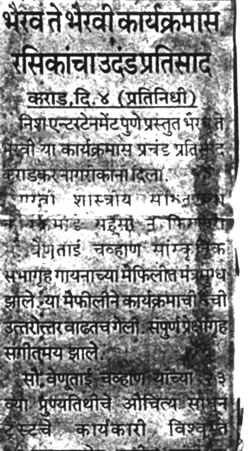 भैरव ते भैरवी कार्यक्रमास
रसिकांचा उदंड प्रतिसाद
कराड, दि. ४ (प्रतिनिधी)
निश एन्टरटेनमेंट पुणे प्रस्तुत भैरव ते
भैरवी या कार्यक्रमास प्रचंड प्रतिसाद
कराडकर नागरीकांनी दिला.
शास्त्रीय
वेणूताई चव्हाण सांस्कृतिक
सभागृह गायनाच्या मैफिलीत मंत्रमुग्ध
झाले. या मैफीलीने कार्यक्रमाची
उत्तरोत्तर वाढतच गेली. संपुर्ण प्रेक्षागृह
संगीतमय झाले.
सौ. वेणूताई चव्हाण यांच्या
व्या पुण्यतिथीचे औचित्य साधुन
ट्रस्टचे कार्यकारी विश्वस्त